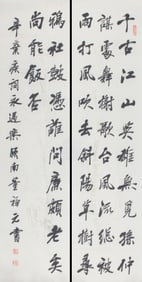 千古江山英雄無覓孫仲
謀處舞榭歌台風流
雨打風吹去斜陽草樹尋
鴉社鼓憑誰問廉頗老矣
尚能飯否
辛棄疾詞永遇樂 元書